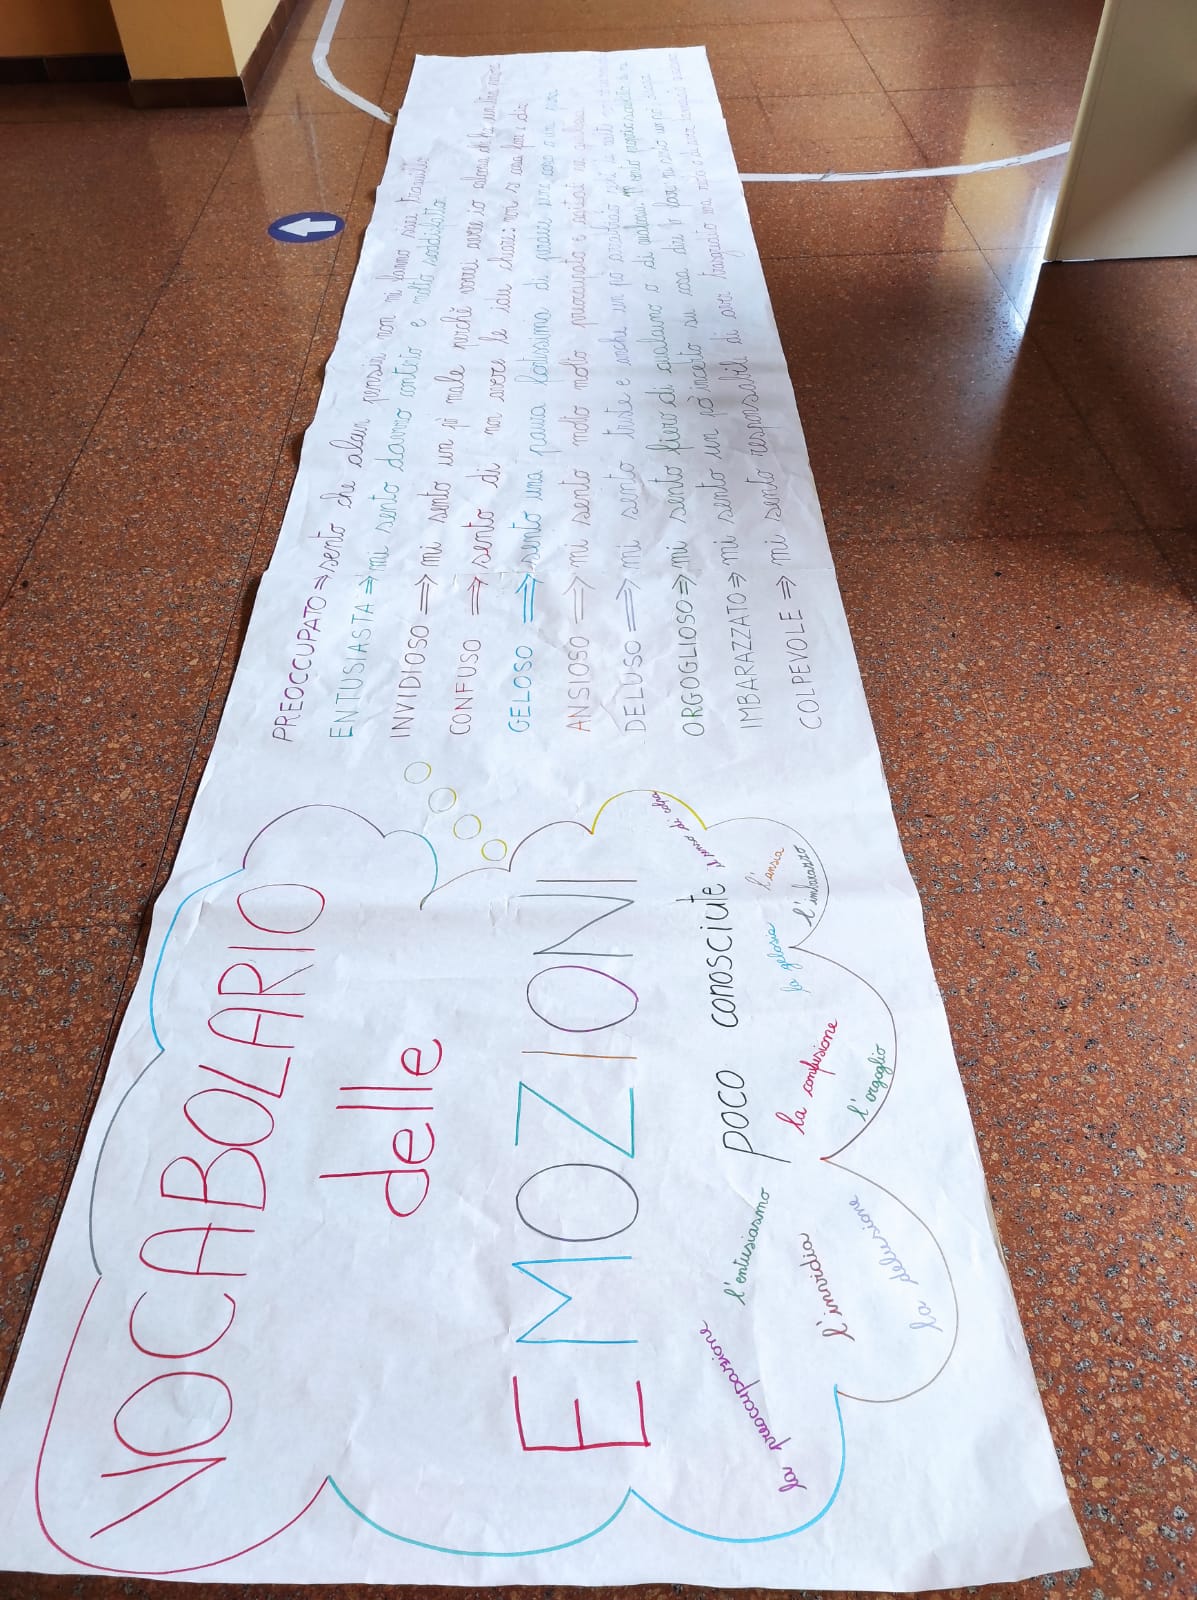 VOCABOLARIO
delle
EMOZIONI
poco conosciute
la preoccupazione
l'entusiasmo
l'invidia
la delusione
la confusione
l'orgoglio
la gelosia
l'ansia
l'imbarazzo
il senso di colpa
PREOCCUPATO ⇒ sento che alcuni pensieri non mi fanno stare tranquillo
ENTUSIASTA ⇒ mi sento davvero contento e molto soddisfatto
INVIDIOSO ⇒ mi sento un pò male perchè vorrei avere io
CONFUSO ⇒ sento di non avere le idee chiare: non so cosa fare e dire
GELOSO ⇒ sento una paura fortissima di perdere
ANSIOSO ⇒ mi sento molto molto preoccupato e
DELUSO ⇒ mi sento triste e anche un po arrabbiato
ORGOGLIOSO ⇒ mi sento fiero di qualcuno o di qualcosa
IMBARAZZATO ⇒ mi sento un pò incerto su cosa dire o fare
COLPEVOLE ⇒ mi sento responsabile di aver